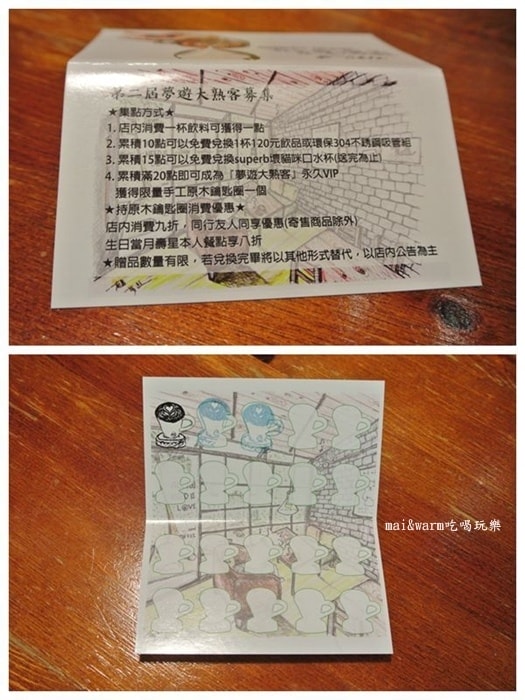 第二屆夢遊大熟客募集
★集點方式★
1. 店內消費一杯飲料可獲得一點
2. 累積10點可以免費兌換1杯120元飲品或環保304不銹鋼吸管組
3. 累積15點可以免費兌換superb壞貓咪口水杯(送完為止)
4. 累積滿20點即可成為「夢遊大熟客」永久VIP
獲得限量手工原木鑰匙圈一個
★持原木鑰匙圈消費優惠★
店內消費九折，同行友人同享優惠(寄售商品除外)
生日當月壽星本人餐點享八折
★贈品數量有限，若兌換完畢將以其他形式替代，以店內公告為主
LOVE
mai&warm吃喝玩樂